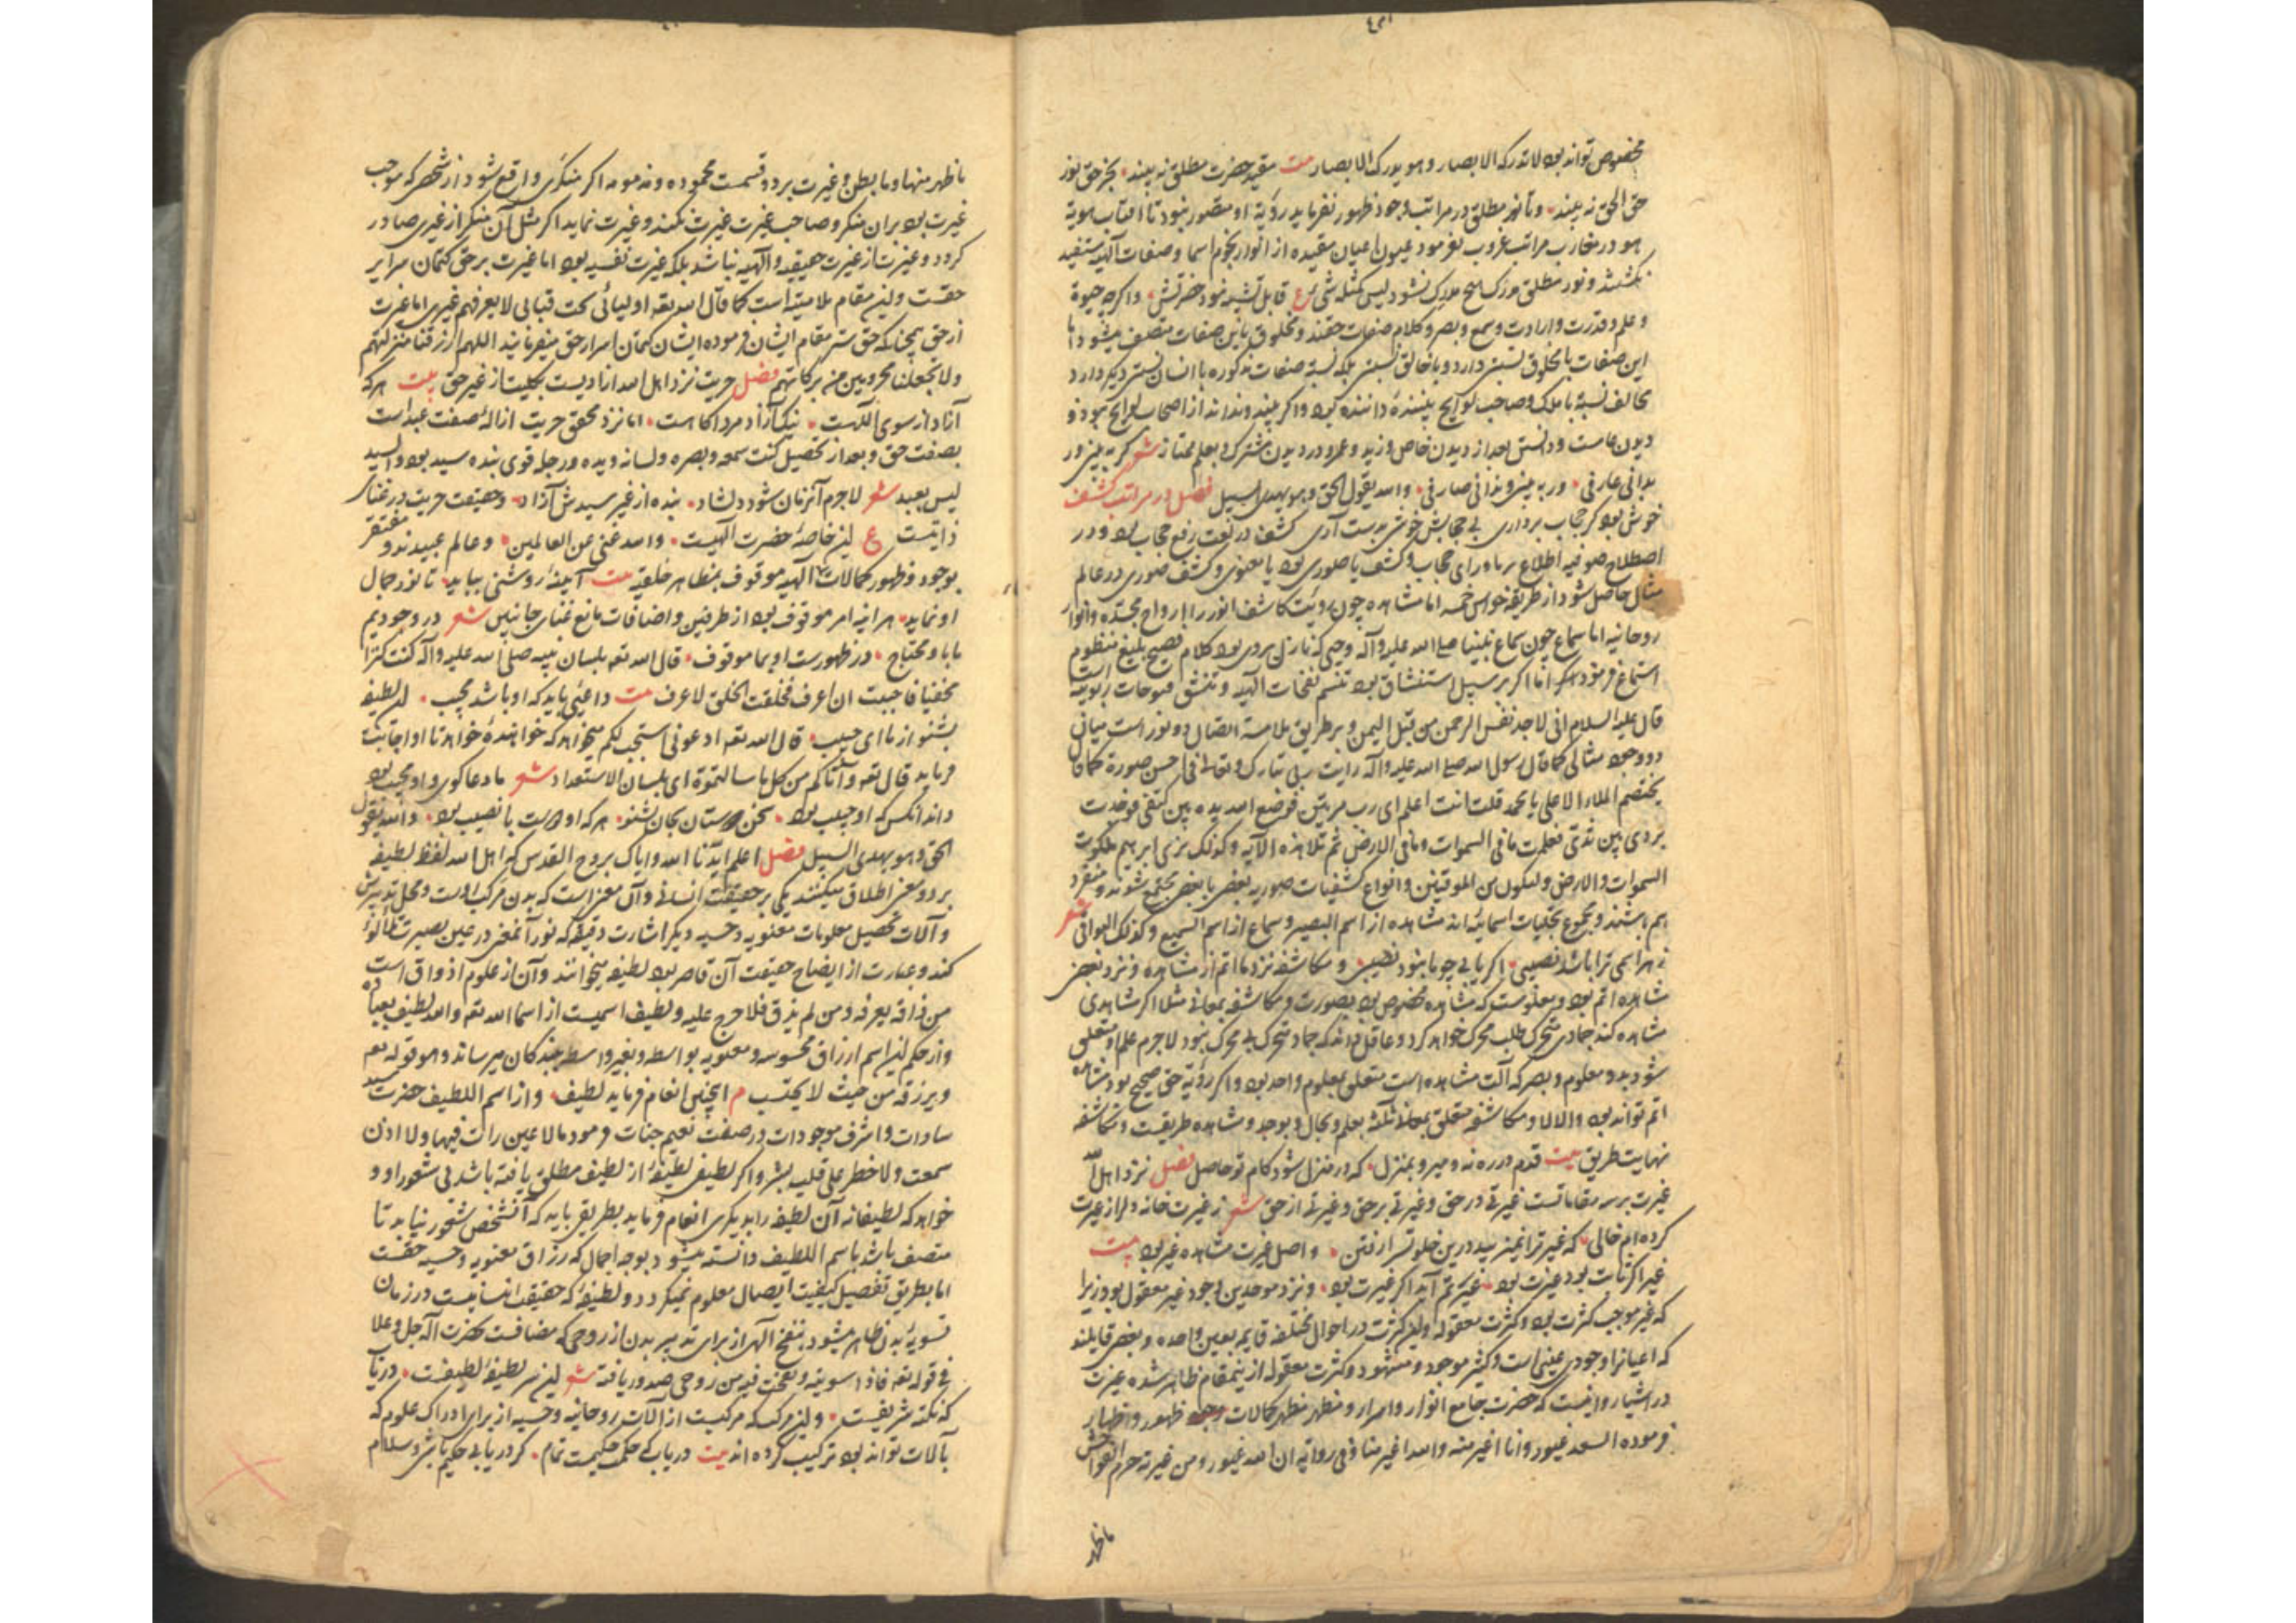 مخصوص تواند بود لا تدرکه الابصار و هو یدرک الابصار بیت مقید حضرت مطلق نه بیند بجز حق نور
حق الحق نه بیند و تا نور مطلق در مراتب وجود ظهور نفرماید رؤیة او متصور نبود تا افتاب هویة
هو در مغارب مراتب غروب نفرمود عیون اعیان مقیده از انوار نجوم اسما و صفات آلهیه مستفید
نکشتند و نور مطلق مدرک هیچ ملاک نشود لیس کمثله شیء ع قابل تشبیه نبود حضرتش و اکرچه حیوة
و علم و قدرت و ارادت و سمع و بصر و کلام صفات حقند و مخلوق باین صفات متصف میشود اما
این صفات با مخلوق نسبتی دارد و با خالق نسبتی بلکه نسبة صفات مذکوره با انسان نسبتی دیکر دارد
مخالف نسبة با ملک و صاحب لوایح بیننده داننده بود و اکر بیند و نداند از اصحاب لوایح نبود و
دیدن عامست و دانستن بعد از دیدن خاص و زید و عمرو در دیدن مشترک و بعلم ممتاز شعر کر به بینی ور
بدانی عارفی ور به بینی و ندانی صارفی و الله یقول الحق و هو یهدی السبیل فصل در مراتب کشف
خوش بود کر حجاب برداری بی حجابش خوشی بدست آری کشف در لغت رفع حجاب بود و در
اصطلاح صوفیه اطلاع بر ماورای حجاب و کشف یا صوری بود یا معنوی و کشف صوری در عالم
مثال حاصل شود از طریقه حواس خمسه اما مشاهده چون رویت کاشف انور را ارواح مجسده و انوار
روحانیه اما سماع چون سماع نبینا صلی الله علیه وآله وحی که نازل بر وی بود کلام فصیح بلیغ منظوم
استماع فرمود اما اکر بر سبیل استنشاق بود تنسم نفحات آلهیه و تنشق فتوحات ربوبیه است
قال علیه السلام انی لاجد نفس الرحمن من قبل الیمن و بر طریق ملامسة اتصال دو نور است میانی
دو وجود مثالی کما قال رسول الله صلی الله علیه وآله رایت ربی تبارک و تعالی فی احسن صورة فقال
یختصم الملاء الاعلی یا محمد قلت انت اعلم ای رب مرتین فوضع الله یده بین کتفی فوجدت
بردی بین ثدیی فعلمت ما فی السموات و ما فی الارض ثم تلا هذه الآیه و کذلک نری ابرهیم ملکوت
السموات والارض و لیکون من الموقنین و انواع کشفیات صوریه بعضی با بعضی مجتمع شوند و منفرد
هم باشند و مجموع تجلیات اسمائیه اند مشاهده از اسم البصیر و سماع از اسم السمیع و کذلک البواقی شعر
ز هر اسمی ترا باشد نصیبی اکر یابی چو ما نبود نصیبی و مکاشفه نزد ما اتم از مشاهده و نزد بعضی
مشاهده اتم بود و معلومست که مشاهده مخصوص بود بصورت و مکاشفه بمعانی مثلا اکر مشاهدی
مشاهده کند جمادی متحرک طلب محرک خواهد کرد و عاقل داند که جماد متحرک بی محرک نبود لاجرم علم او متعلق
شود بدو معلوم و بصر که آلت مشاهده است متعلق بمعلوم واحد بود و اکر رؤیة حق صحیح بود مشاهده
اتم تواند بود و الا لا و مکاشفه متعلق بمعانی ثلثه بعلم و بحال و بوجد و مشاهده طریقیست و مکاشفه
نهایت طریق بیت قدم در ره نه و میرو بمنزل که در منزل شود کام تو حاصل فصل نزد اهل الله
غیرت بر سه مقاماتست غیرتی در حق و غیرتی بر حق و غیرتی از حق شعر ز غیرت خانه دل را ز غیرت
کرده ام خالی که غیرت را نمیزیبد درین خلوتسرا رفتن و اصل غیرت مشاهده غیر بود بیت
غیر اکر ثابت بود غیرت بود غیرتم آید اکر غیرت بود و نزد موحدین وجود غیر معقول بود زیرا
که غیر موجب کثرت بود و کثرت معقوله و این کثرت در احوال مختلفه قایمه بعین واحده و بعضی قایلند
که اعیانرا وجودی عینی است و کثیر موجود و مشهود و کثرت معقوله ازینمقام ظاهر شده غیرت
در اشیا و انیست که حضرت جامع انوار و اسرار و مظهر مظهر کمالات وجود ظهور و اظهار
فرموده السعد غیور و انا اغیر منه و الله اغیر منا و فی روایه ان الله غیور و من غیرته حرم الفواحش
ما ظهر
ما ظهر منها و ما بطن و غیرت بر دو قسمست محموده و مذمومه اکر منکری واقع شود از شخصی که موجب
غیرت بود بر ان منکر و صاحب غیرت غیرت نکند و غیرت نماید اکر مثل آن منکر از غیری صادر
کردد و غیرت از غیرت حقیقیه و آلهیه نباشد بلکه غیرت نفسیه بود اما غیرت بر حق کتمان سرایر
حقست و این مقام ملامیه است کما قال الله تعه اولیائی تحت قبابی لا یعرفهم غیری اما غیرت
از حق همچنانکه حق ستر مقام ایشان فرموده ایشان کتمان اسرار حق میفرمایند اللهم ارزقنا منزلتهم
ولا تجعلنا محرومین من برکاتهم فصل حریت نزد اهل الله ازادیست بکلیت از غیر حق بیت هرکه
آزاد از سوی اللهست نیک آزاد مرد اکاهست اما نزد محقق حریت ازالۀ صفت عبداست
بصفت حق و بعد از تحصیل کنت سمعه و بصره و لسانه و یده و رجله قوی بنده سید بود و السید
لیس بعبد شعر لاجرم آنزمان شود دلشاد بنده از غیر سیدش آزاد و حقیقت حریت در غنای
ذاتیست ع این خاصۀ حضرت آلهیست و الله غنی عن العالمین و عالم عبیدند و مفتقر
بوجود و ظهور کمالات آلهیه موقوف بمظاهر خلقیه بیت آینۀ روشنی بباید تا نور جمال
او نماید هر اینه امر موقوف بود از طرفین و اضافات مانع غنای جانبین شعر در وجودیم
ما باو محتاج در ظهورست او بما موقوف قال الله تعه بلسان نبیه صلی الله علیه وآله کنت کنزا
مخفیا فاحببت ان اعرف فخلقت الخلق لاعرف بیت داعئی باید که او باشد مجیب این لطیفه
بشنو از ما ای حبیب قال الله تعه ادعونی استجب لکم میخواهد که خوانندۀ خواهد تا او اجابت
فرماید قال تعه و آتاکم من کل ما سالتموه ای بلسان الاستعداد شعر ما دعا کوی و او مجیب بود
داند انکس که او حبیب بود سخن دوستان بجان بشنو هرکه او دوست با نصیب بود و الله یقول
الحق و هو یهدی السبیل فصل اعلم ایدنا الله و ایاک بروح القدس که اهل الله لفظ لطیفه
بر دو معنی اطلاق میکنند یکی بر حقیقت انسانی و آن معنی است که بدن مرکب اوست و محل تدبیرش
و آلات تحصیل معلومات معنویه و حسیه و دیکر اشارت دقیقه که نور آنمعنی در عین بصیرت تلألؤ
کند و عبارت از ایضاح حقیقت آن قاصر بود لطیفه میخوانند و آن از علوم اذواق است
من ذاقه یعرفه و من لم یذق فلا حرج علیه و لطیف اسمیست از اسما الله تعه و الله لطیف بعباده
و از حکم این اسم ارزاق محسوسه و معنویه بواسطه و بغیر واسطه ببندکان میرساند و هو قوله تعه
ویرزقه من حیث لا یحتسب م اینچنین انعام فرماید لطیف و از اسم اللطیف حضرت سید
سادات و اشرف موجودات در صفت نعیم جنات فرمود ما لا عین رات فیها و لا اذن
سمعت و لا خطر علی قلب بشر و اکر لطیفی لطیفۀ از لطیف مطلق یافته باشد بی شعور او و
خواهد که لطیفانه آن لطیفه را بدیکری انعام فرماید بطریقی باید که آنشخص شعور نیابد تا
متصف باشد باسم اللطیف دانسته میشود بوجه اجمال که رزاق معنویه و حسیه حقست
اما بطریق تفصیل کیفیت ایصال معلوم نمیکردد و لطیفۀ که حقیقت انسانیست در زمان
تسویۀ بدن ظاهر میشود بنفخ آلهی از برای تدبیر بدن از روحی که مضافست بحضرت آله جل و علا
فی قوله تعه فاذا سویته و نفخت فیه من روحی صدور یافته شعر این سر لطیفۀ لطیفست دریاب
که نکتۀ شریفیست و این مرکب که مرکبست از آلات روحانیه و حسیه از برای ادراک علوم که
بآلات تواند بود ترکیب کرده اند بیت دریاب که حکم حکیمست تمام کر دریابی حکیم باشی و سلام